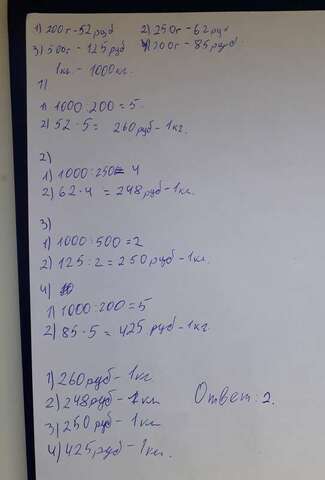 1) 200г-52руб 2) 250г-62руб
3) 500г-125руб 4) 200г-85руб
1кг. - 1000кг.
1)
1) 1000:200=5
2) 52·5= 260руб-1кг.
2)
1) 1000:250= 4
2) 62·4 = 248руб-1кг.
3)
1) 1000:500=2
2) 125:2=250руб-1кг.
4)
1) 1000:200=5
2) 85·5=425 руб-1кг.
1) 260руб-1кг.
2) 248руб-1кг Ответ: 2.
3) 250руб-1кг
4) 425руб-1кг.